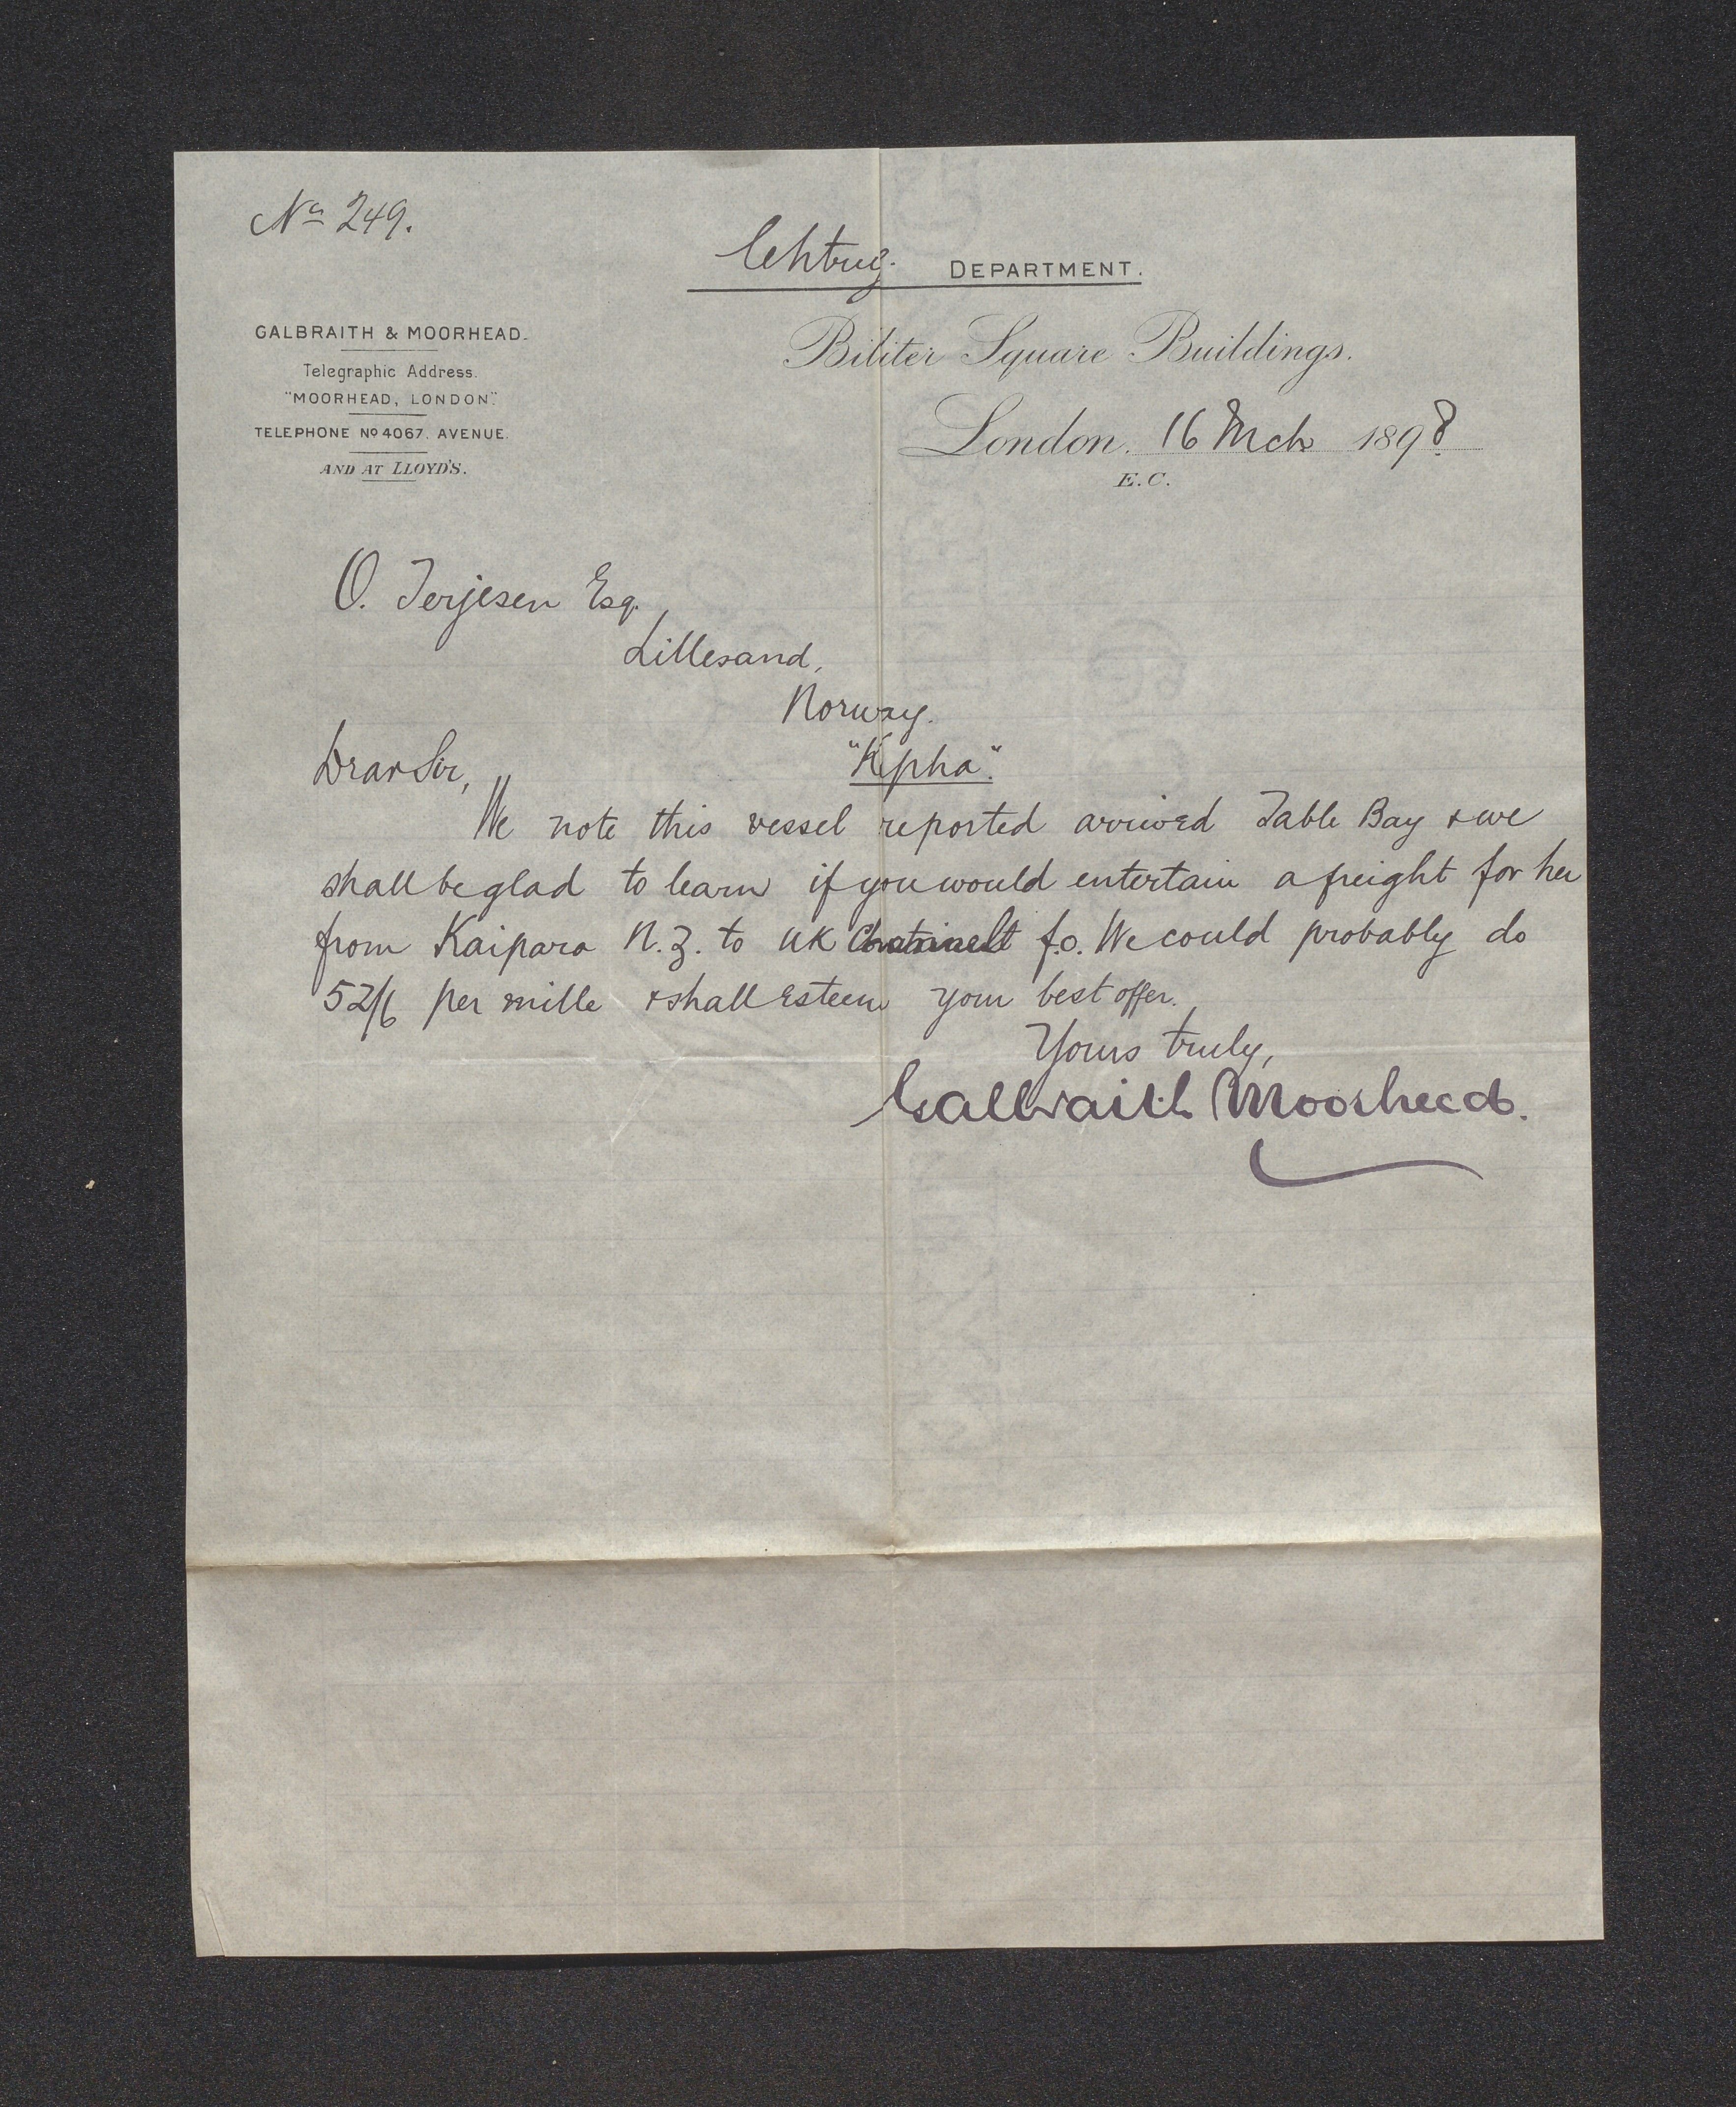 No 249.
Chtrg. DEPARTMENT.
GALBRAITH & MOORHEAD.
Telegraphic Address.
"MOORHEAD, LONDON".
TELEPHONE No 4067. AVENUE.
AND AT LLOYD'S.
Billiter Square Buildings.
London. 16 Mch 1898
E.C.
O. Terjesen Esq.
Lillesand,
Norway.
Dear Sir, "Alpha".
We note this vessel reported arrived Table Bay & we
shall be glad to learn if you would entertain a freight for her
from Kaipara N.Z. to UK f.o. We could probably do
52/6 per mille & shall esteem your best offer.
Yours truly,
Galbraith Moorhead.